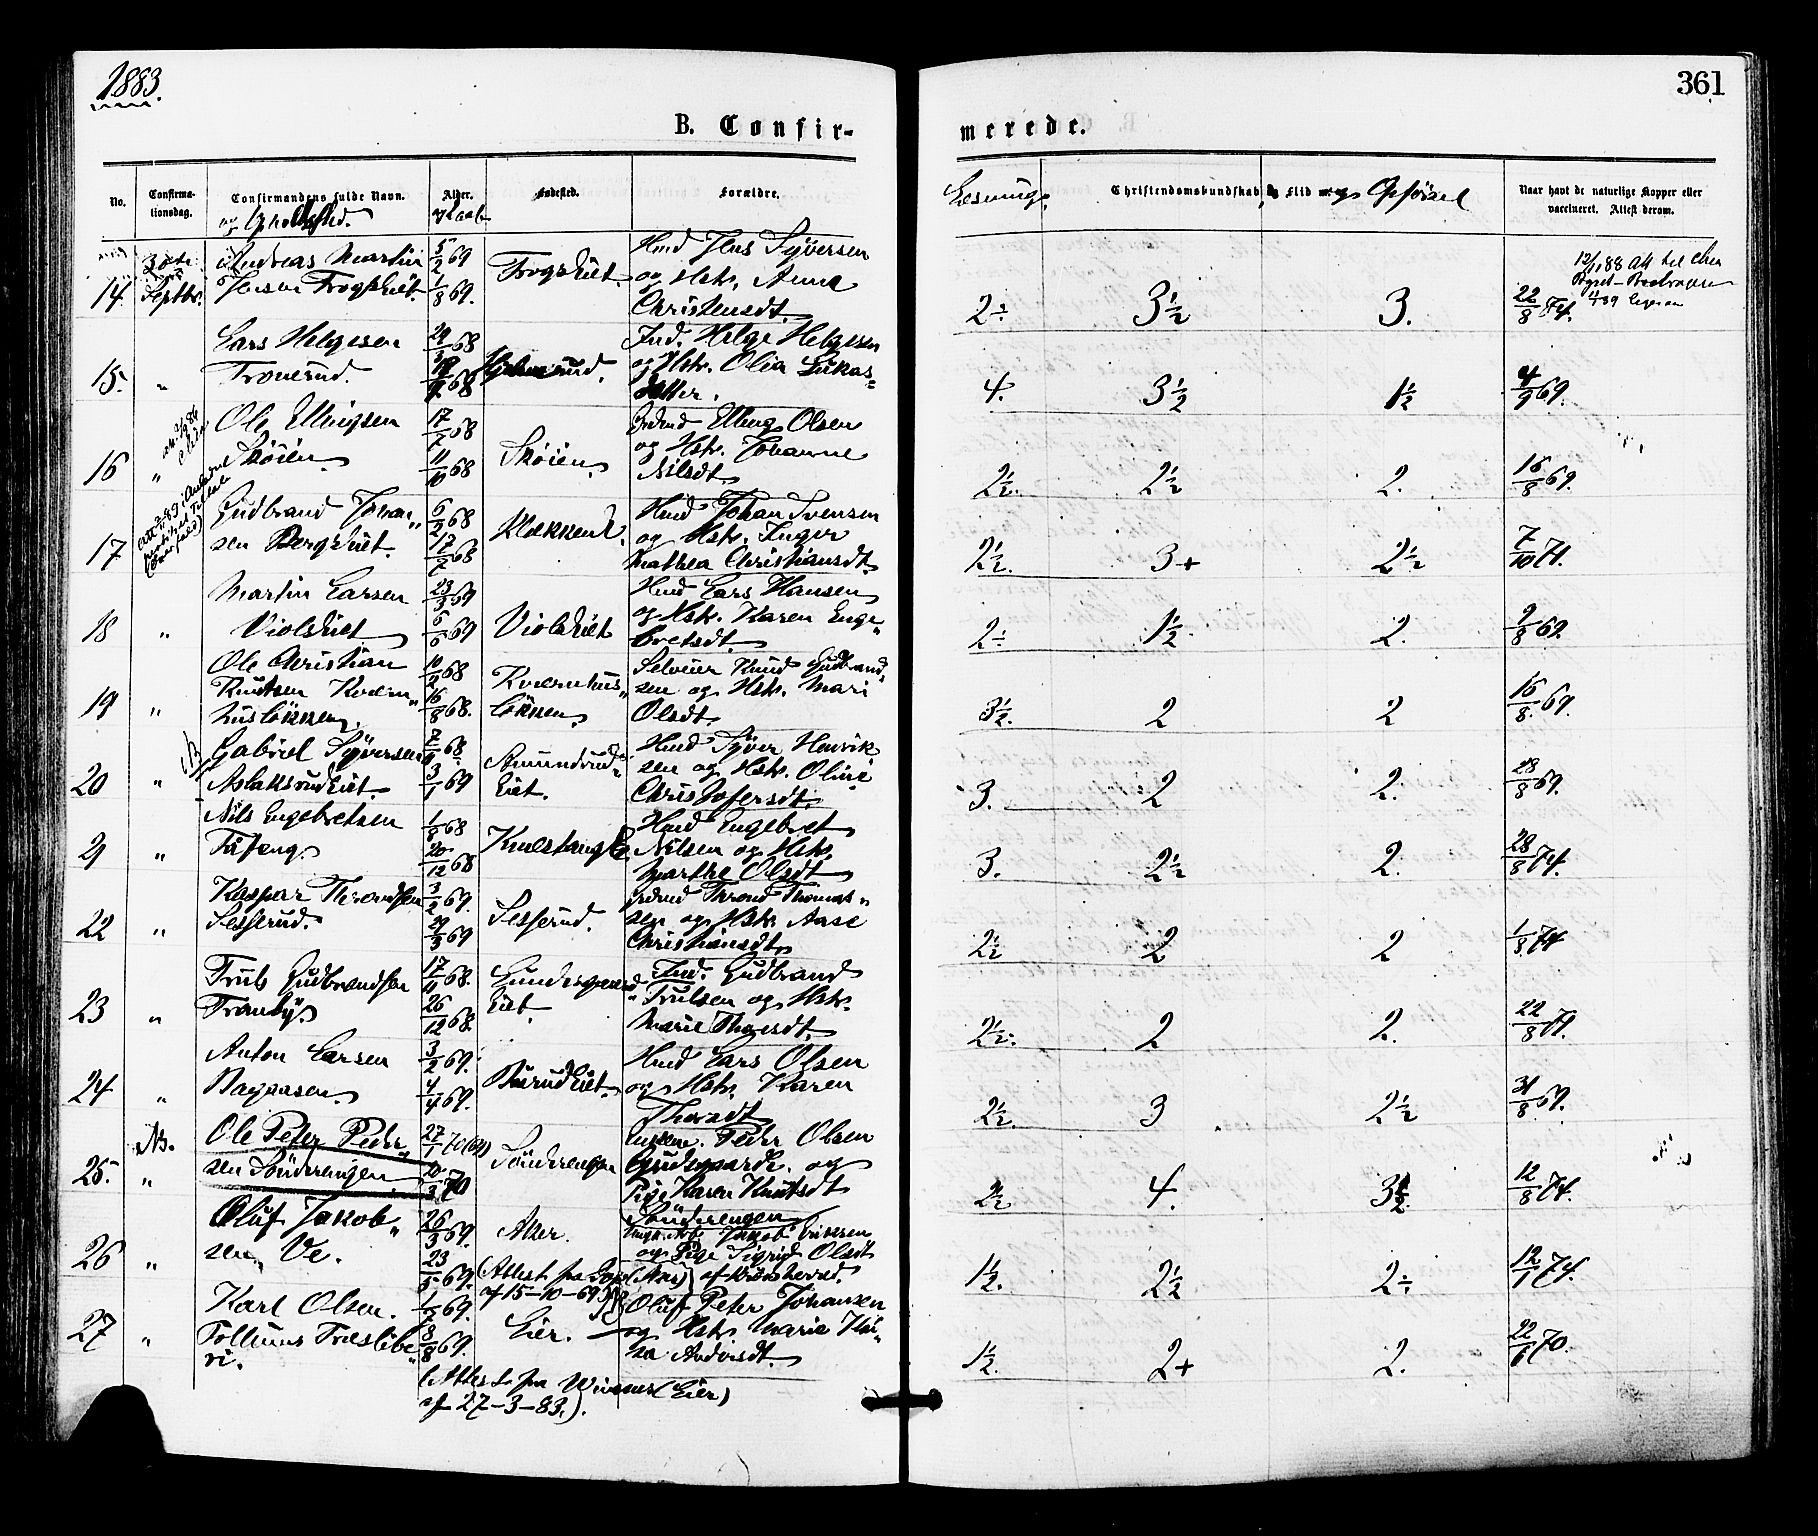 1883.
361
B. Confir-
merede.
No.
Confirma-
tionsdag.
Confirmandens fulde Navn.
og Opholdssted.
Alder.
og Daab
Fødested.
Forældre.
Læsning.
Christendomskundskab,
Flid og Opførsel
Naar havt de naturlige Kopper eller
vaccineret. Attest derom.
14. 30te Septbr. Andreas Martin
Jensen Frogshiet.
5/2 69
1/8 69.
Frogshiet.
Hmd Jens Syversen
og Hstr. Anne
Christensdt.
2÷ 3½ 3. 22/8 74.
15. " Lars Helgesen
Tronerud.
68
68
Ind. Helge Helgesen
og Hstr. Olia Lukas=
datter.
4. 3½ 1½ 4/9 69.
16 " Ole Ellingsen
Skøien.
17/7 68
11/10 68
Skøien.
Elling Olsen
og Hstr. Johanne
Nilsdt.
2½. 2½ 2. 16/8 69.
17 Gudbrand Johan„
sen Bergshiet.
6/2 68
17/7 68
Hmd Johan Svensen
og Hstr. Inger
Mathea Christiansdt.
2½. 3+ 2½ 7/10 71.
18 " Martin Larsen
Violshiet
23/3 69
6/6 69
Violshiet
Hmd Lars Hansen
og Hstr. Karen Enge„
bretsdt.
2÷ 1½. 2. 9/8 69.
19 " Ole Christian
Knutsen Kværn„
husløkken.
10/2 68
16/8 68.
Kværnhus„
løkken.
Selveier Knud Gudbrand„
sen og Hstr. Mari
Olsdt.
3½. 2 2 16/8 69.
20 " Gabriel Syversen
Aslaksrudhiet.
68.
3/1 69
Amundrud=
hiet.
Hmd Syver Henrik
sen og Hstr. Oline
Christofersdt.
3. 2 2. 28/8 69.
21 " Nils Engebretsen
Tajeng.
1/8 68
20/12 68
Knestang
Hmd Engebret
Nilsen og Hstr.
Marthe Olsdt
3. 2½ 2. 28/8 74.
22 " Kaspar Throndsen
Sesserud.
3/2 69.
29/3 69
Sesserud.
Thrond Thomas„
sen og Hstr. Aase
Christiansdt.
2½ 2 2 1/8 74
23 " Truls Gudbrandsen
Tranby.
17/11 68.
26/12 68.
hiet.
Ind. Gudbrand
Trulsen og Hstr.
Marie Thorsdt.
2½. 2 2. 22/8 74.
24 " Anton Larsen
3/2 69.
4/4 69.
Burudhiet.
Hmd Lars Olsen
og Hstr. Karen
Thorsdt
2½ 3 2½ 31/8 69.
25. NB. " Ole Peter Peder„
sen Sönderengen.
27/1 70
20/3 70
Sönderengen
Peder Olsen
og
Pige Karen Knutsdt
Sönderengen
2½ 4. 3½ 12/8 74.
26 " Oluf Jakob„
sen Ve.
26/3 69.
23/5 69.
Aker.
Ungk. Jakob
og Pige Sigrid Olsdt
(Attest fra
af 15-10-69)
1½. 2½ 2÷ 12/1 74.
27 " Karl Olsen.
69.
8/8 69.
Eier.
Oluf Peter Johansen
og Hstr. Marie Kai„
sa Andrisdt.
(Attest fra (Eier)
af 27-3-83.).
1½. 2+ 2. 22/6 70.